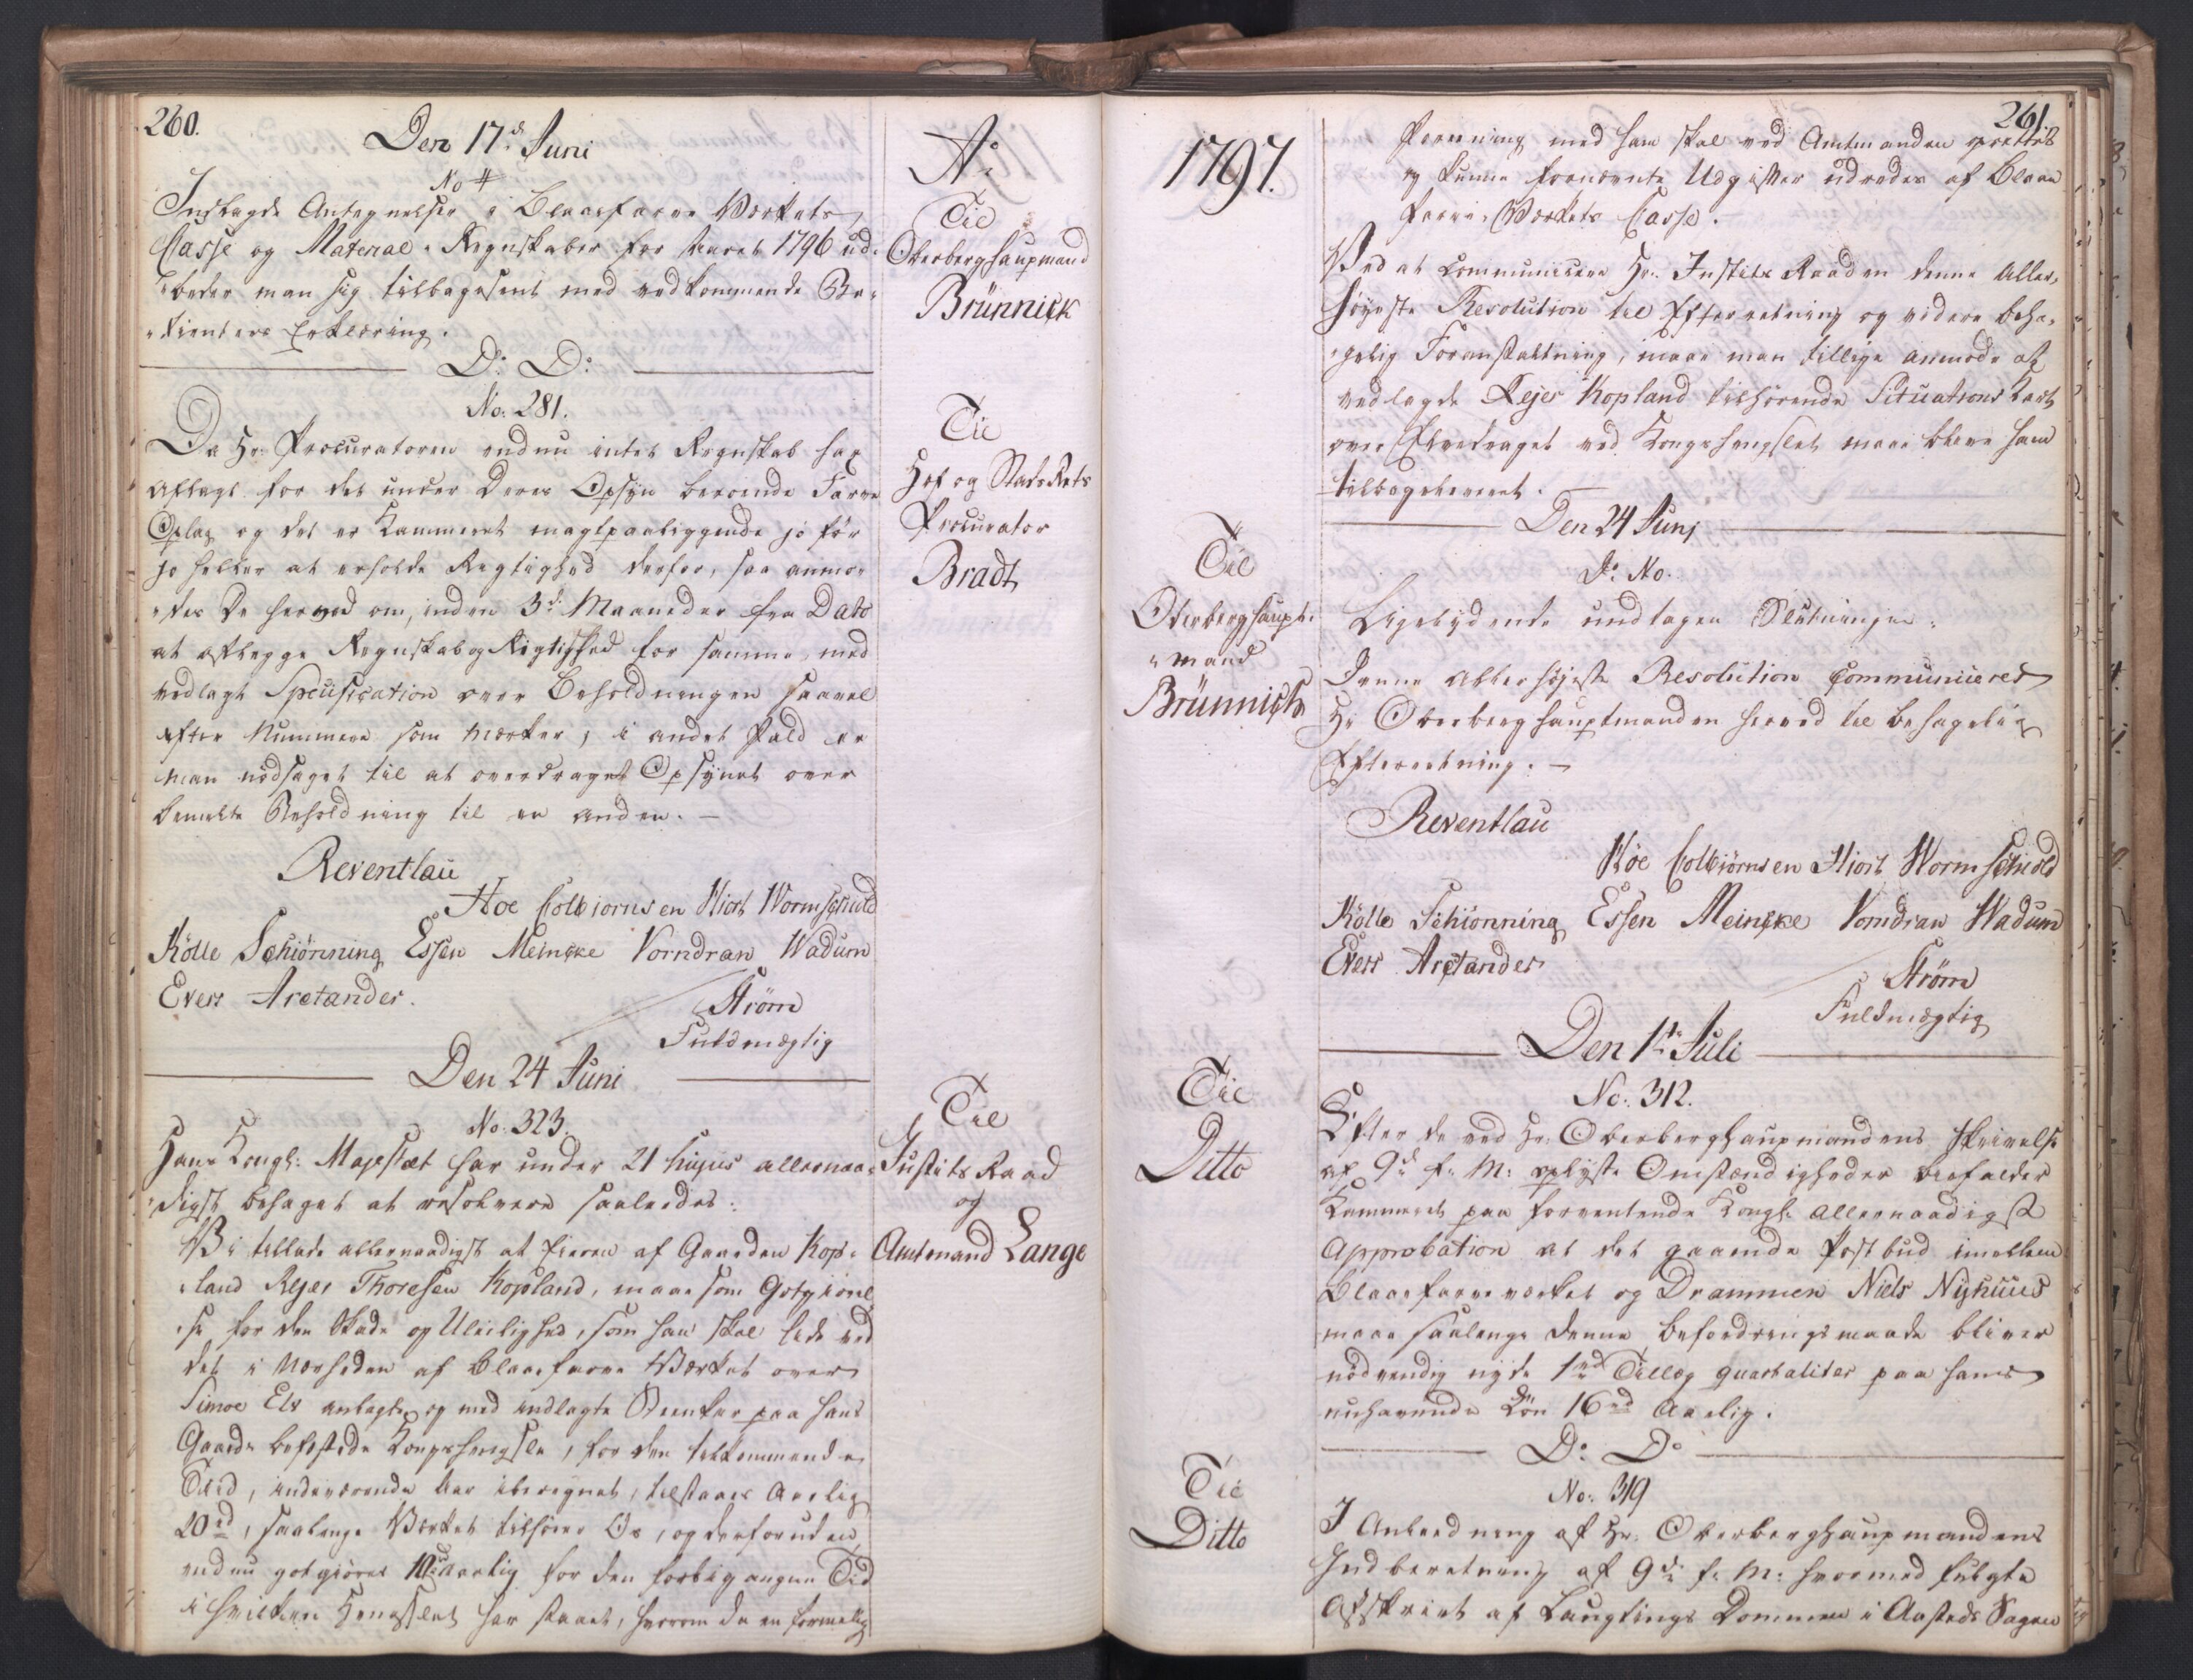 260.
Den 17de Juni
No #
Indlagde Antegnelser i Blaafarve Værkets
Casse og Material-Regnskaber for Aaret 1796 ud-
beder man sig tilbagesent med vedkommende Be-
tienteres Erklæring.
A:
Til
Oberberghaupmand
Brünnick
D: D:
No: 281.
Da Hr: Procuratoren endnu intet Regnskab har
aflagt for det under Deres Opsyn beroende Farve
Oplag og det er Kammeret magtpaaliggende jo før
jo heller at erholde Rigtighed derfor, saa anmo-
des De herved om, inden 3de Maaneder fra Dato
at aflegge Regnskab og Rigtighed for samme, med
vedlagt Specification over Beholdningen saavel
efter Nummere som Mærker, i andet Fald er
man nødsaget til at overdraget Opsynet over
bemelte Beholdning til en anden. —
Til
Hof og Stads Rets
Procurator
Bradt
Reventlau
Hoe Colbiørnsen Hiort Wormschiold
Kölle Schiönning Essen Meincke Vorndran Wadum
Evers Arctander.
Strøm
Fuldmægtig
Den 24 Juni
No: 323.
Hans Kongl: Majestæt har under 21 hujus allernaa-
digst behaget at resolvere saaledes:
Vi tillade allernaadigst at Eieren af Gaarden Kop-
land Rejer Thoresen Kopland, maae som Godtgiørel-
se for den Skade og Uleilighed, som han skal lide ved
det i Nærheden af Blaafarve Værket over
Simoe Elv anlagte og med indlagte Bænker paa hans
Gaard befæstede Kongshengsle, for den tilkommende
Tiid, indeværende Aar iberegnet, tilstaaes Aarlig
20 rd, saalenge Værket tilhører Os, og derforuden
endnu godtgiøres 10 rd Aarlig for den forbigangne Tid
i hvilken Hengslet har staaet, hvorom da en formelig
Til
Justits Raad
og
Amtmand Lange
1797.
261.
Forening med ham skal ved Amtmanden oprettes
og kunne forenævnte Udgifter udredes af Blaae
Farve-Værkets Casse.
Ved at communicere Hr: Justits Raaden denne Aller-
høyeste Resolution til Efterretning og videre beha-
gelig Foranstaltning, maae man tillige anmode at
vedlagde Rejer Kopland tilhørende Situations Kart
over Elvedraget ved Kongshengslet maae bleve ham
tilbageleveret.
Den 24 Junj
D: No.
Til
Oberberghaupt-
mand
Brünnich
Ligelydende undtagen Slutningen:
Denne Allerhøjeste Resolution communiceres
Hr Oberberghauptmanden herved til behagelig
Efterretning. —
Reventlau
Høe Colbiørnsen Hiort Wormschiold
Kölle Schiønning Essen Meincke Vorndran Wadum
Evers Arctander
Strøm
Fuldmægtig
Den 1ste Juli
No: 312.
Til
Ditto
Efter de ved Hr: Oberberghaupmandens Skrivelse
af 9de f: M: oplyste Omstændigheder bifalder
Kammeret paa forventende Kongl: allernaadigst
Approbation at det gaaende Postbud imellem
Blaafarveværket og Drammen Niels Nyhuus
maae saalenge denne Befordringsmaade bliver
nødvendig nyde 1 rd Tillæg quartaliter paa hans
nuhavende Løn 16 rd Aarlig.
D: D:
No: 319
Til
Ditto
I Anledning af Hr: Oberberghaupmandens
Indberetning af 9de f: M: hvormed fulgte
Afskrivt af Laugtings Dommen i Aasteds Sagen